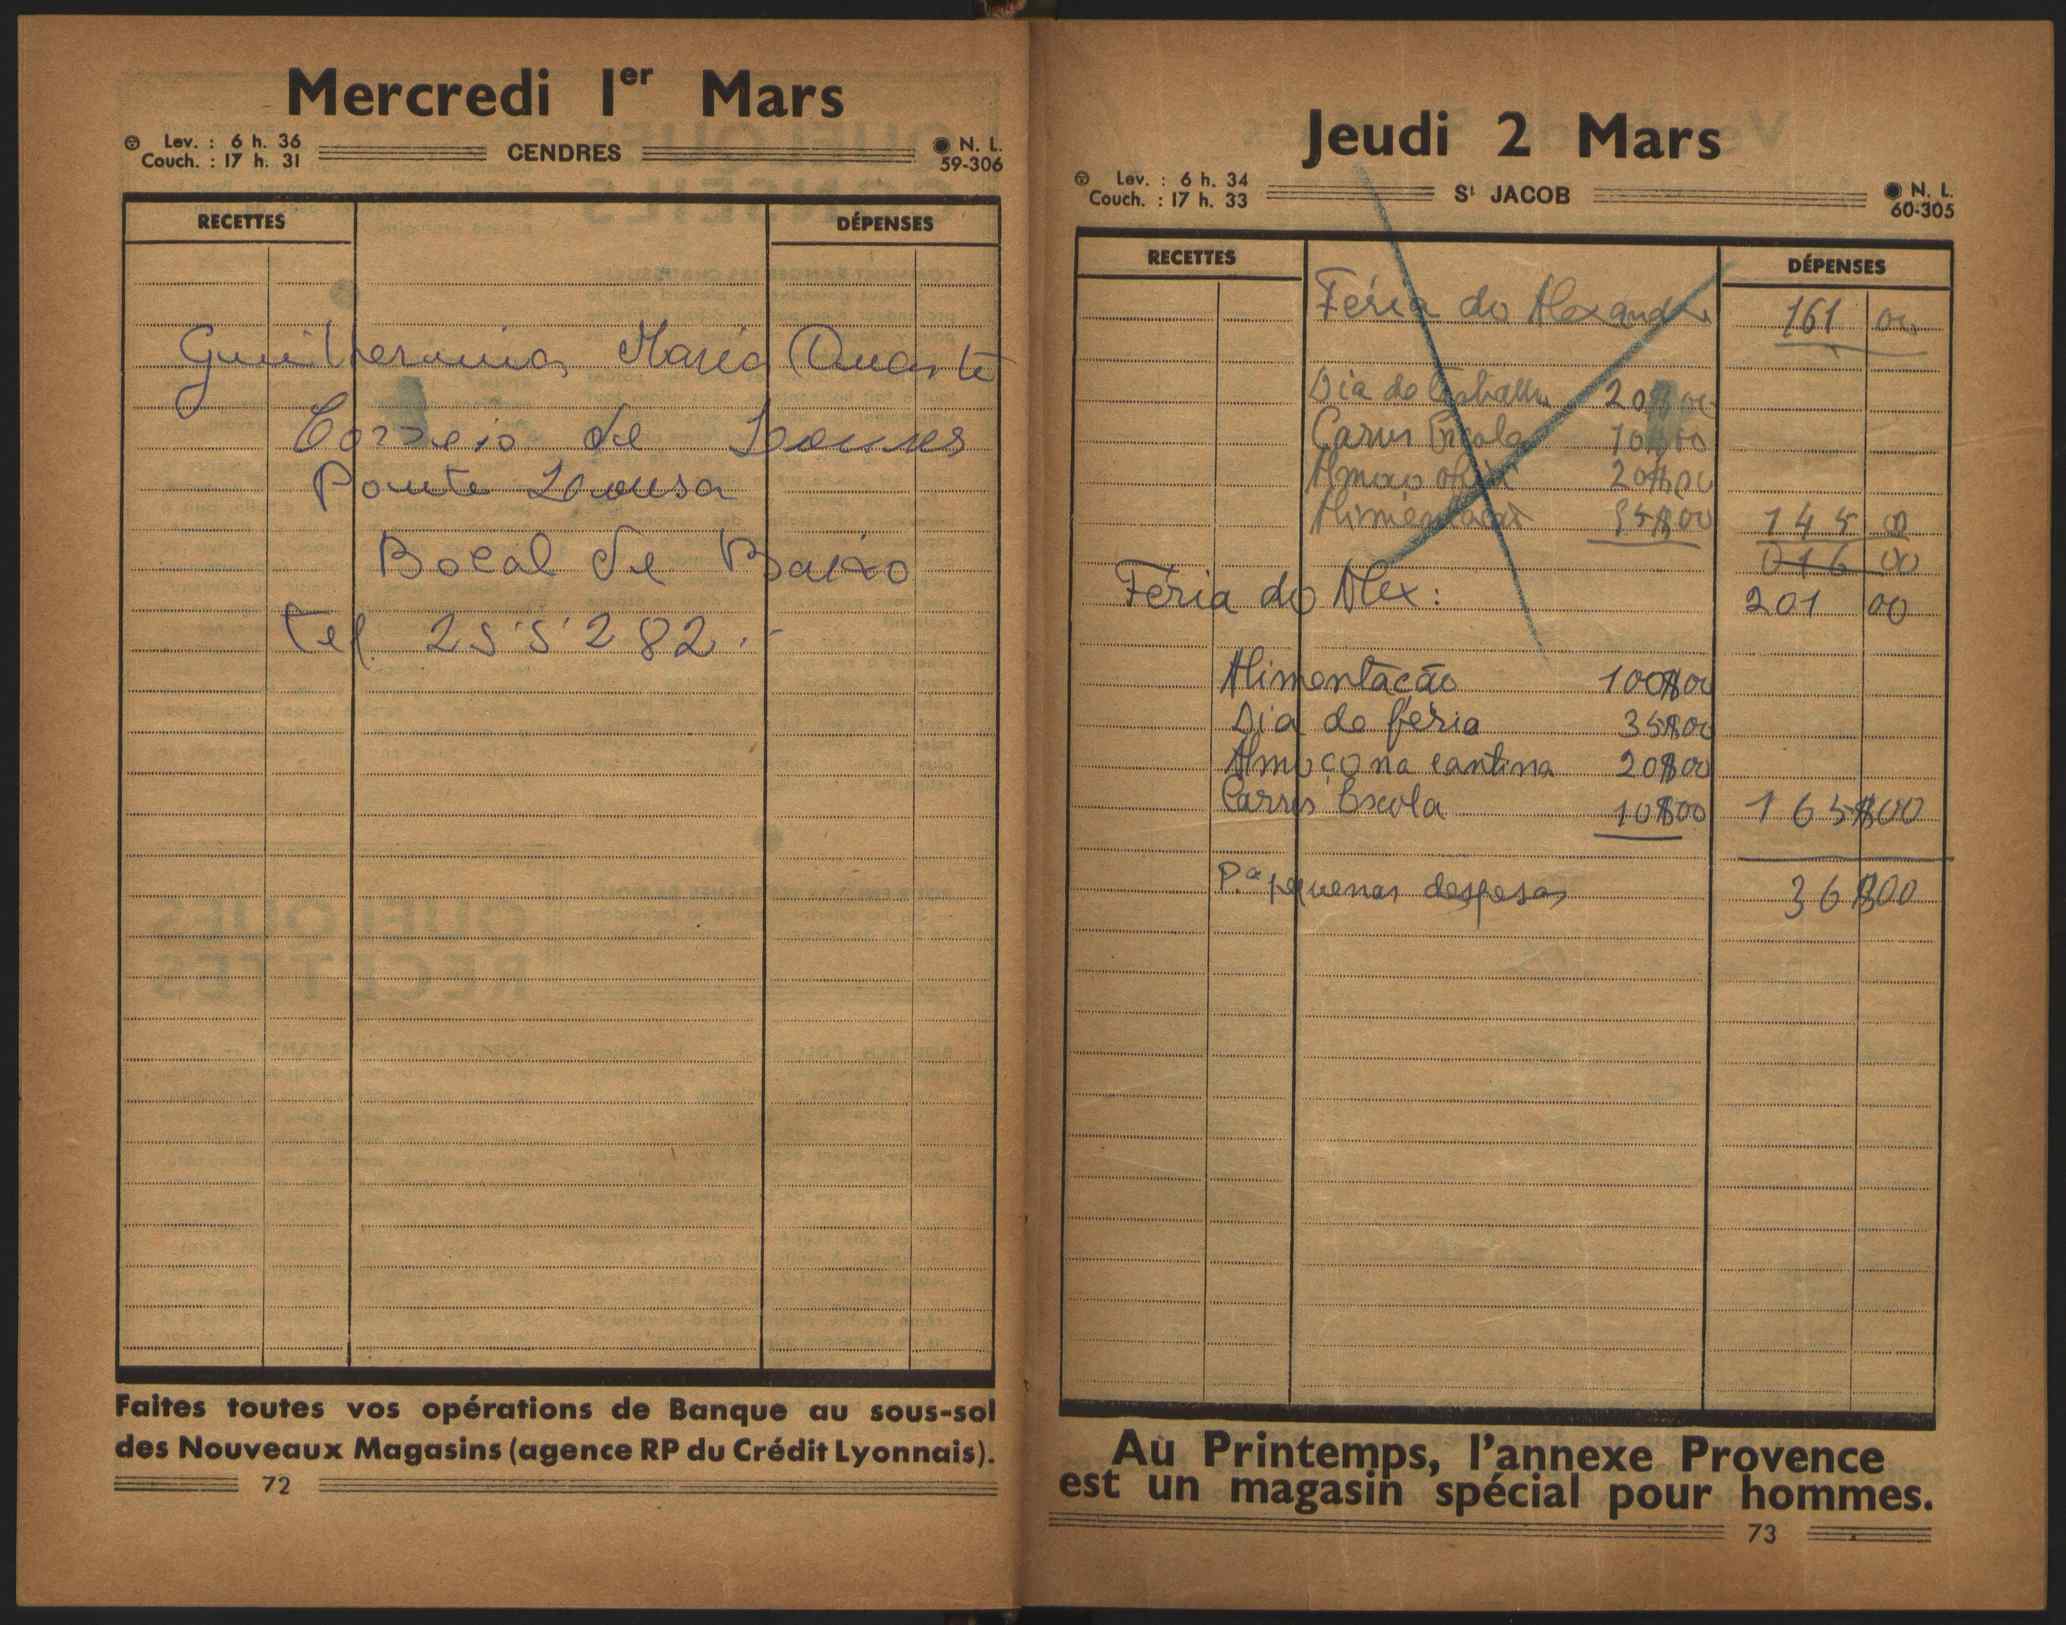 Mercredi 1er Mars
Lev. : 6 h. 36
Couch. : 17 h. 31
CENDRES
N. L.
59-306
RECETTES
DÉPENSES
Guilhermina Maria Duarte
Correio de Loures
Ponte Lousa
Bocal de Baixo
tel. 255282.-
Faites toutes vos opérations de Banque au sous-sol
des Nouveaux Magasins (agence RP du Crédit Lyonnais).
72
Jeudi 2 Mars
Lev. : 6 h. 34
Couch. : 17 h. 33
St JACOB
N. L.
60-305
RECETTES
DÉPENSES
Féria do Alexandre 161 00
Dia do 20$00
Carris Escola 10$00
Almoço 20$00
Alimentação 95$00 145 00
016 00
Féria do Alex: 201 00
Alimentação 100$00
Dia de féria 35$00
Almoço na cantina 20$00
Carris Escola 10$00 165$00
P.a pequenas despesas 36$00
Au Printemps, l'annexe Provence
est un magasin spécial pour hommes.
73